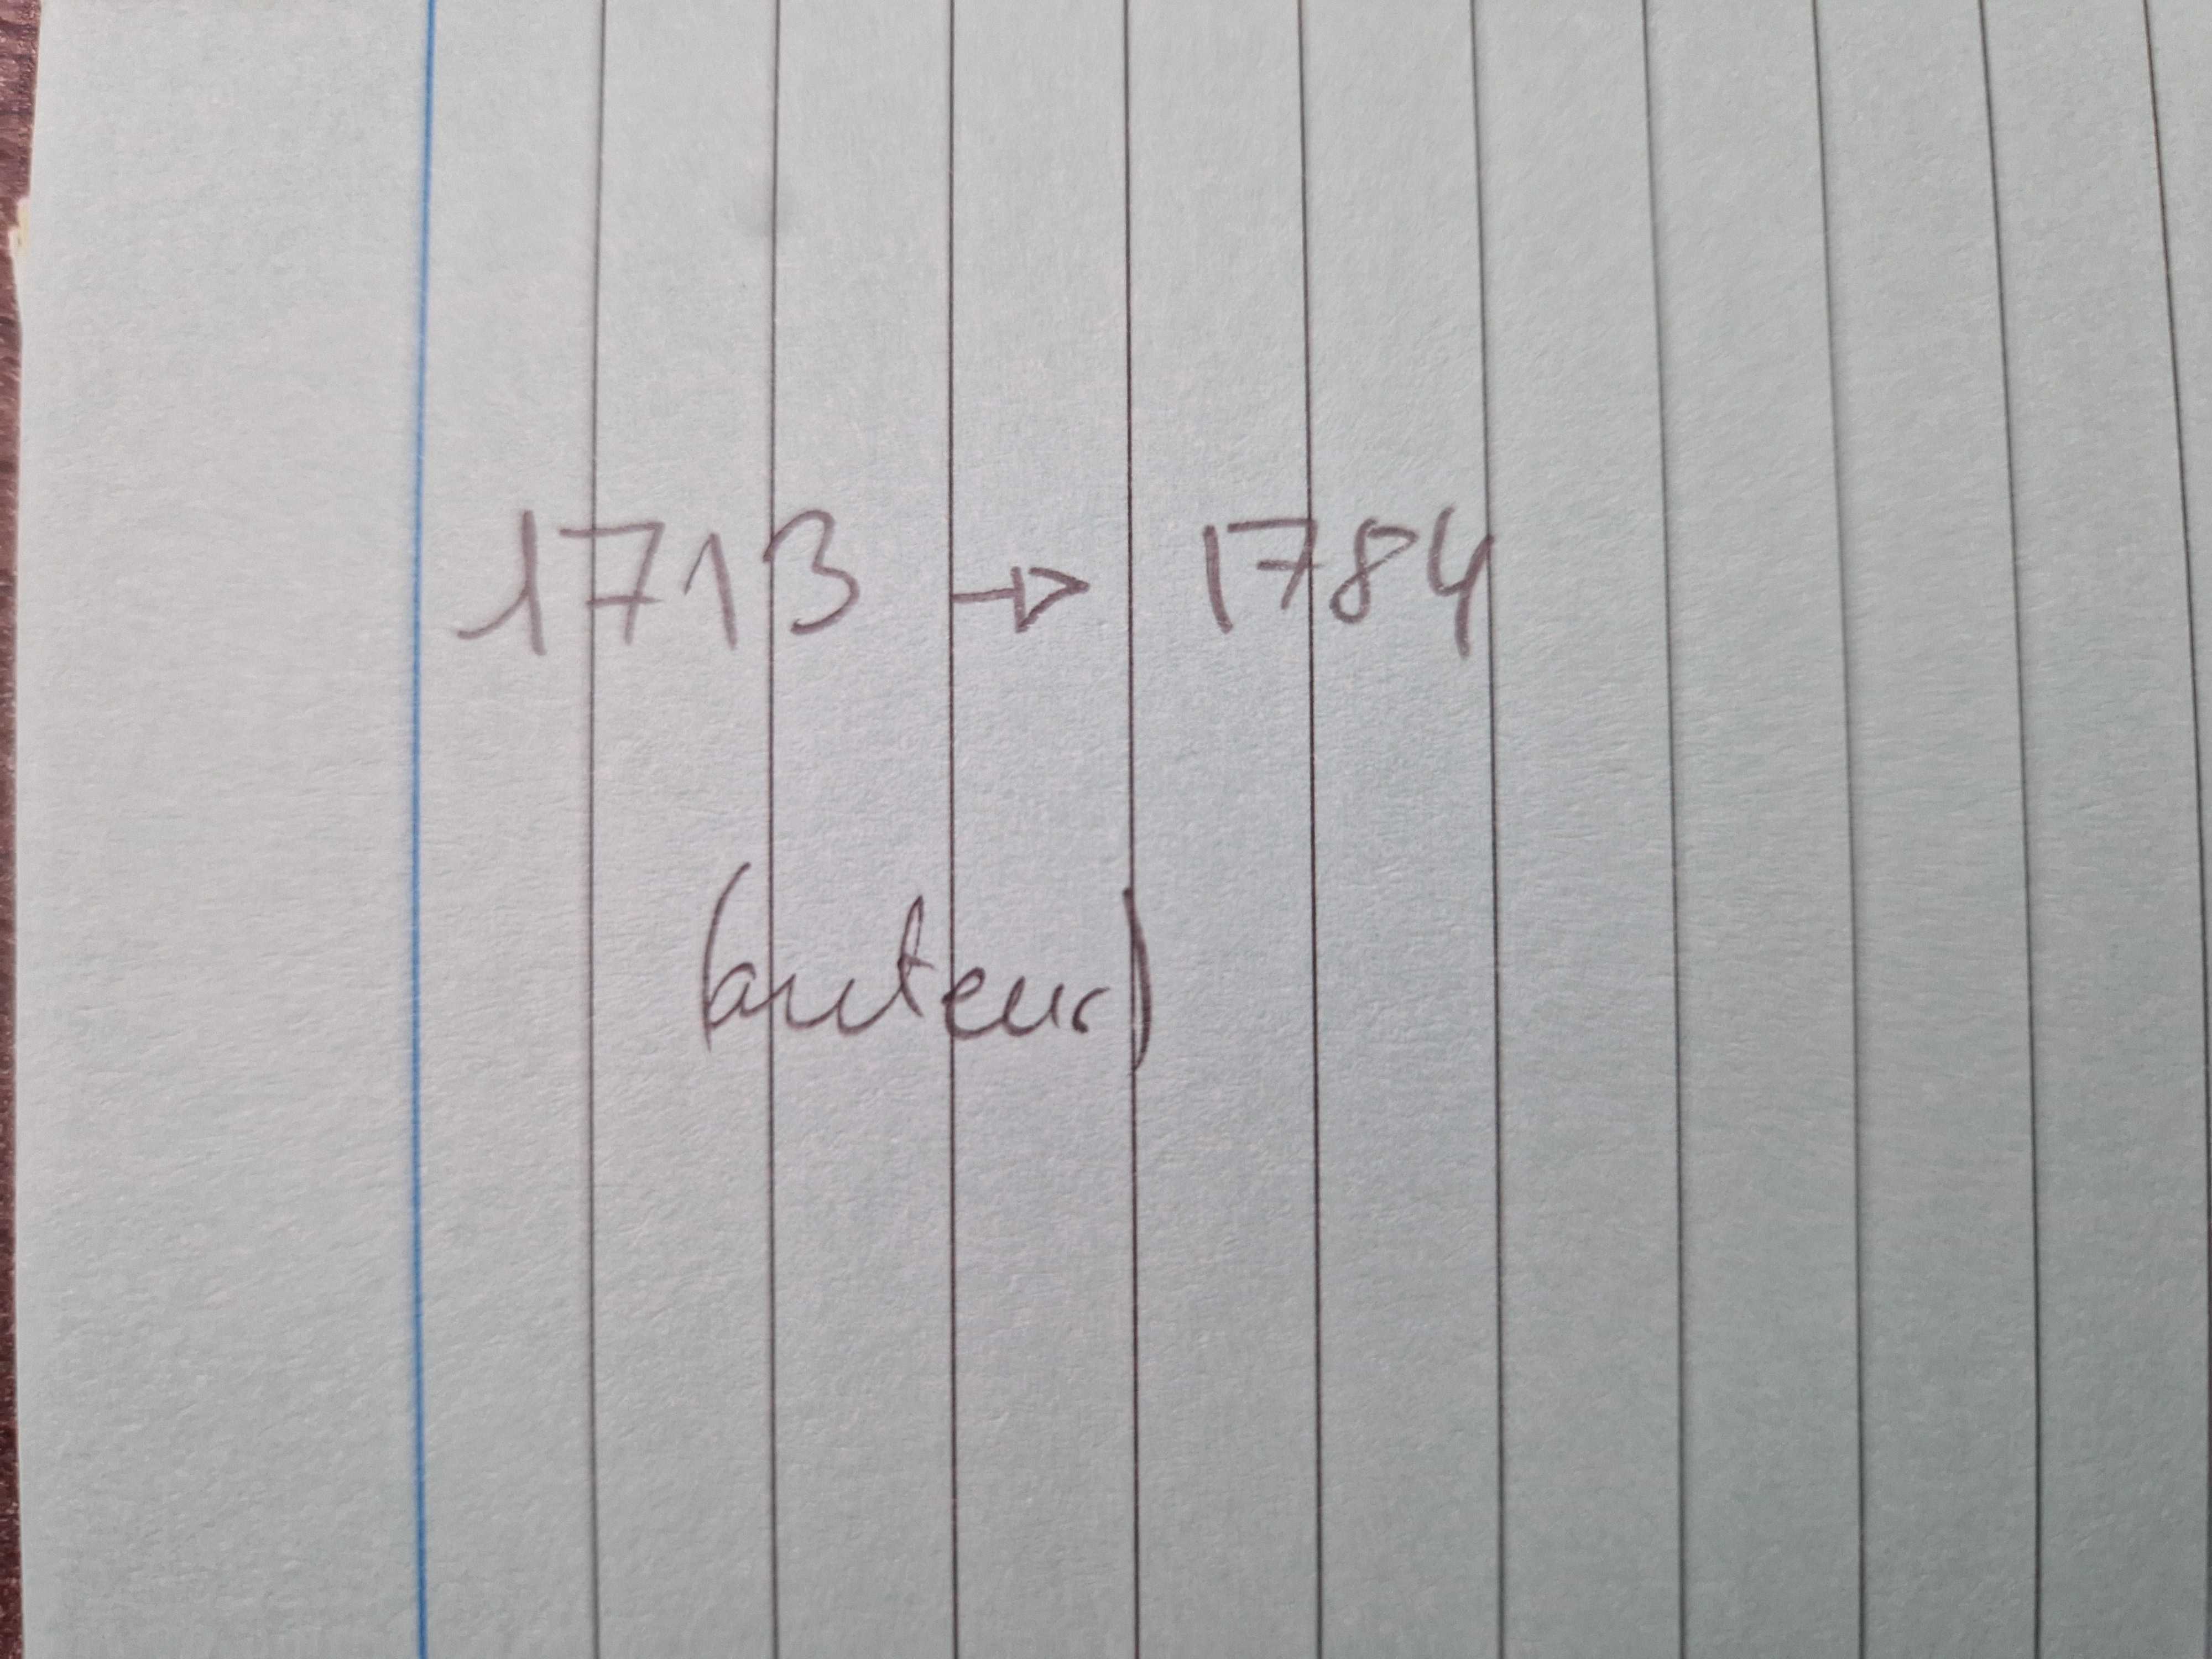 1713 → 1784
(auteur)